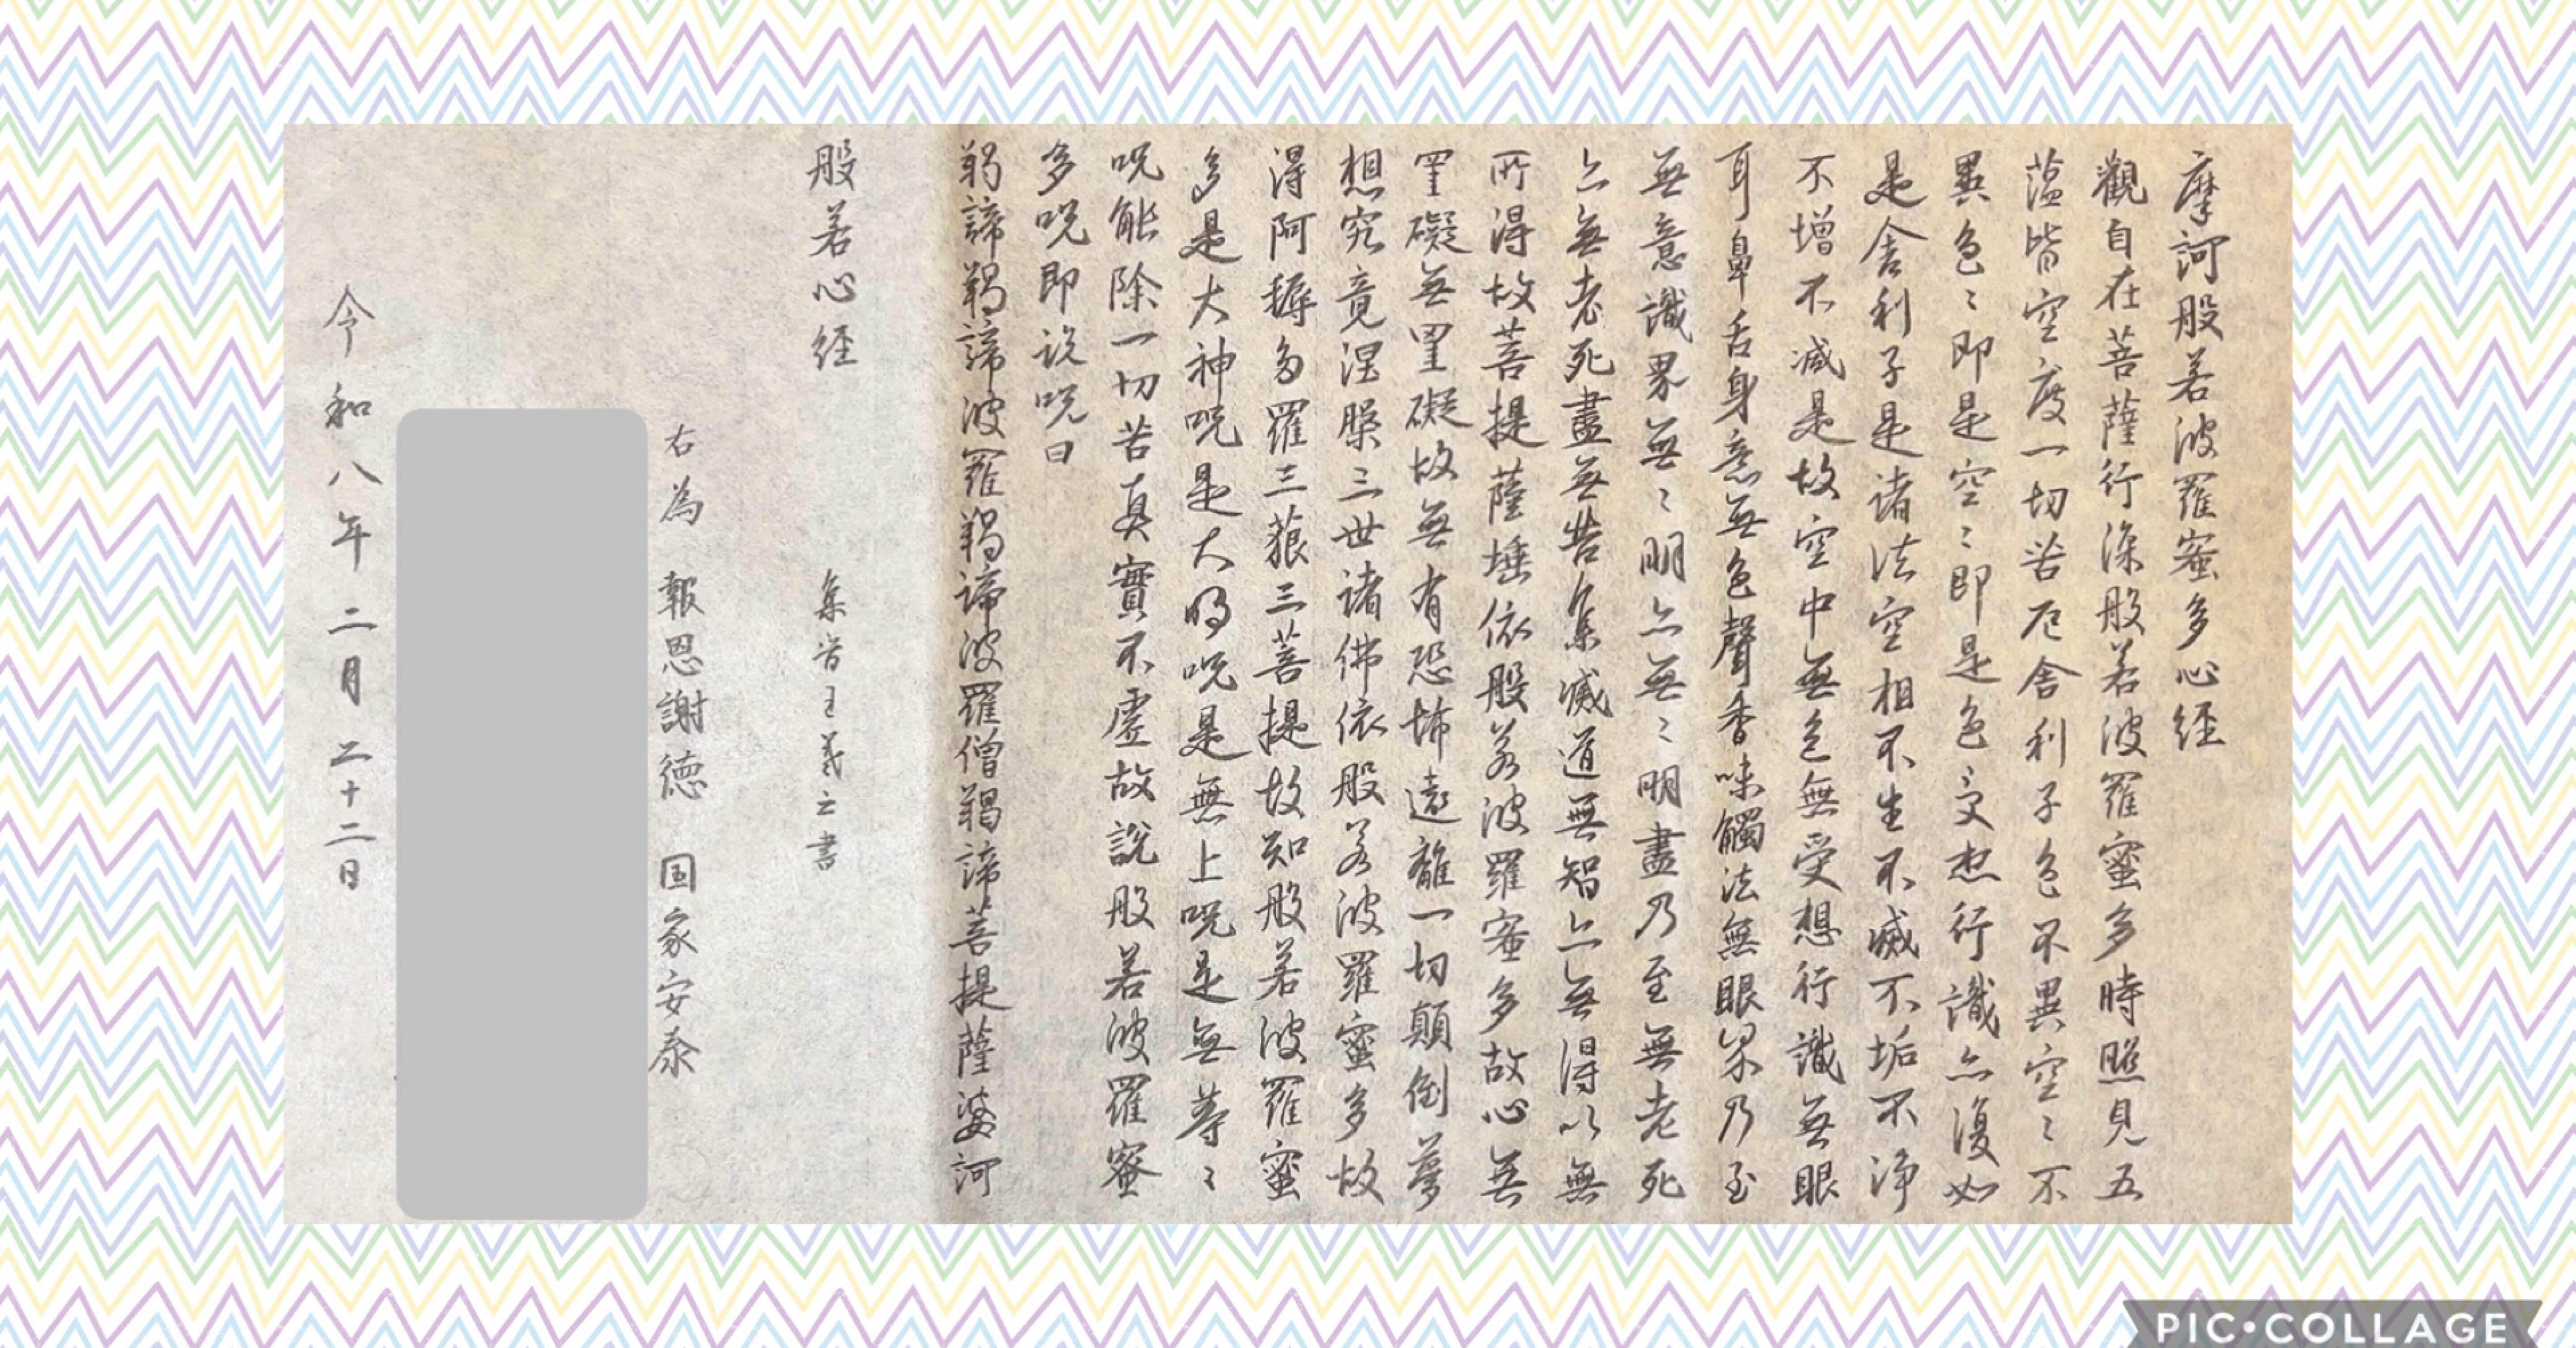 摩訶般若波羅蜜多心経
觀自在菩薩行深般若波羅蜜多時照見五
蕰皆空度一切苦厄舎利子色不異空〻不
異色〻即是空〻即是色〻受想行識亦復如
是舎利子是諸法空相不生不滅不垢不浄
不増不滅是故空中無色無受想行識無眼
耳鼻舌身意無色聲香味觸法無眼界乃至
無意識界無〻明亦無〻明盡乃至無老死
亦無老死盡無苦集滅道無智亦無得以無
所得故菩提薩埵依般若波羅蜜多故心無
罣礙無罣礙故無有恐怖遠離一切顛倒夢
想究竟涅槃三世諸佛依般若波羅蜜多故
得阿耨多羅三藐三菩提故知般若波羅蜜
多是大神呪是大明呪是無上呪是無等〻
呪能除一切苦真實不虚故說般若波羅蜜
多呪即説呪曰
羯諦羯諦波羅羯諦波羅僧羯諦菩提薩婆訶
般若心経
集晋王羲之書
右為 報恩謝徳 国家安泰
令和八年二月二十二日
PIC•COLLAGE